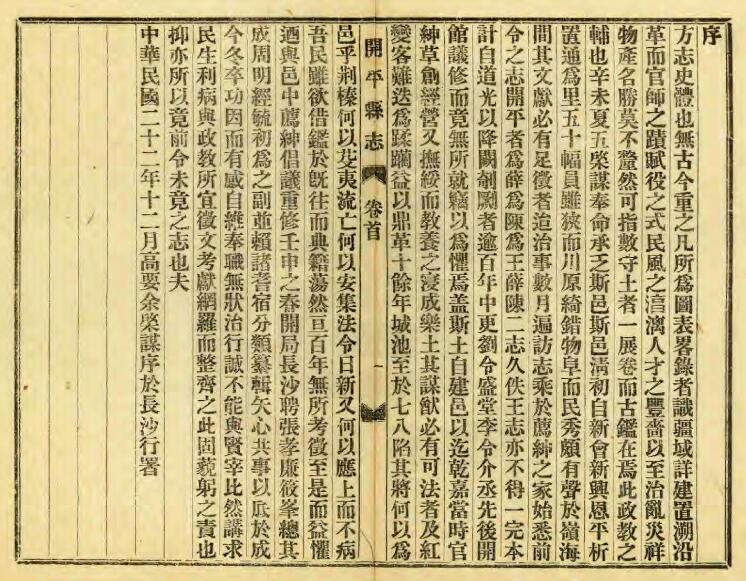 序
方志史體也無古今重之凡所爲圖表畧錄者識疆域詳建置溯沿
革而官師之蹟賦役之式民風之淳漓人才之豐嗇以至治亂災祥
物產名勝莫不釐然可指數守土者一展卷而古鑑在焉此政教之
輔也辛未夏五棨謀奉命承乏斯邑斯邑淸初自新會新興恩平析
置通爲里五十幅員雖狹而川原綺錯物阜而民秀頗有聲於嶺海
間其文獻必有足徵者迨治事數月遍訪志乘於薦紳之家始悉前
令之志開平者爲薛爲陳爲王薛陳二志久佚王志亦不得一完本
計自道光以降闕剞劂者逾百年中更劉令盛堂李令介丞先後開
館議修而竟無所就竊以爲懼焉蓋斯土自建邑以迄乾嘉當時官
紳草創經營又撫綏而教養之寖成樂土其謀猷必有可法者及紅
變客難迭爲蹂躪益以鼎革十餘年城池至於七八陷其將何以爲
開平縣志 卷首 一
邑乎荆榛何以芟夷流亡何以安集法令日新又何以應上而不病
吾民雖欲借鑑於旣往而典籍蕩然亘百年無所考徵至是而益懼
迺與邑中薦紳倡議重修壬申之春開局長沙聘張孝廉筱峯總其
成周明經毓初爲之副並賴諸耆宿分類纂輯矢心共事以底於成
今冬卒功因而有感自維奉職無狀治行誠不能與賢宰比然講求
民生利病與政教所宜徵文考獻網羅而整齊之此固藐躬之責也
抑亦所以竟前令未竟之志也夫
中華民國二十二年十二月高要余棨謀序於長沙行署